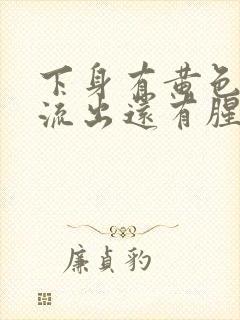 下身有黄色
流出还有腥
廉贞豹